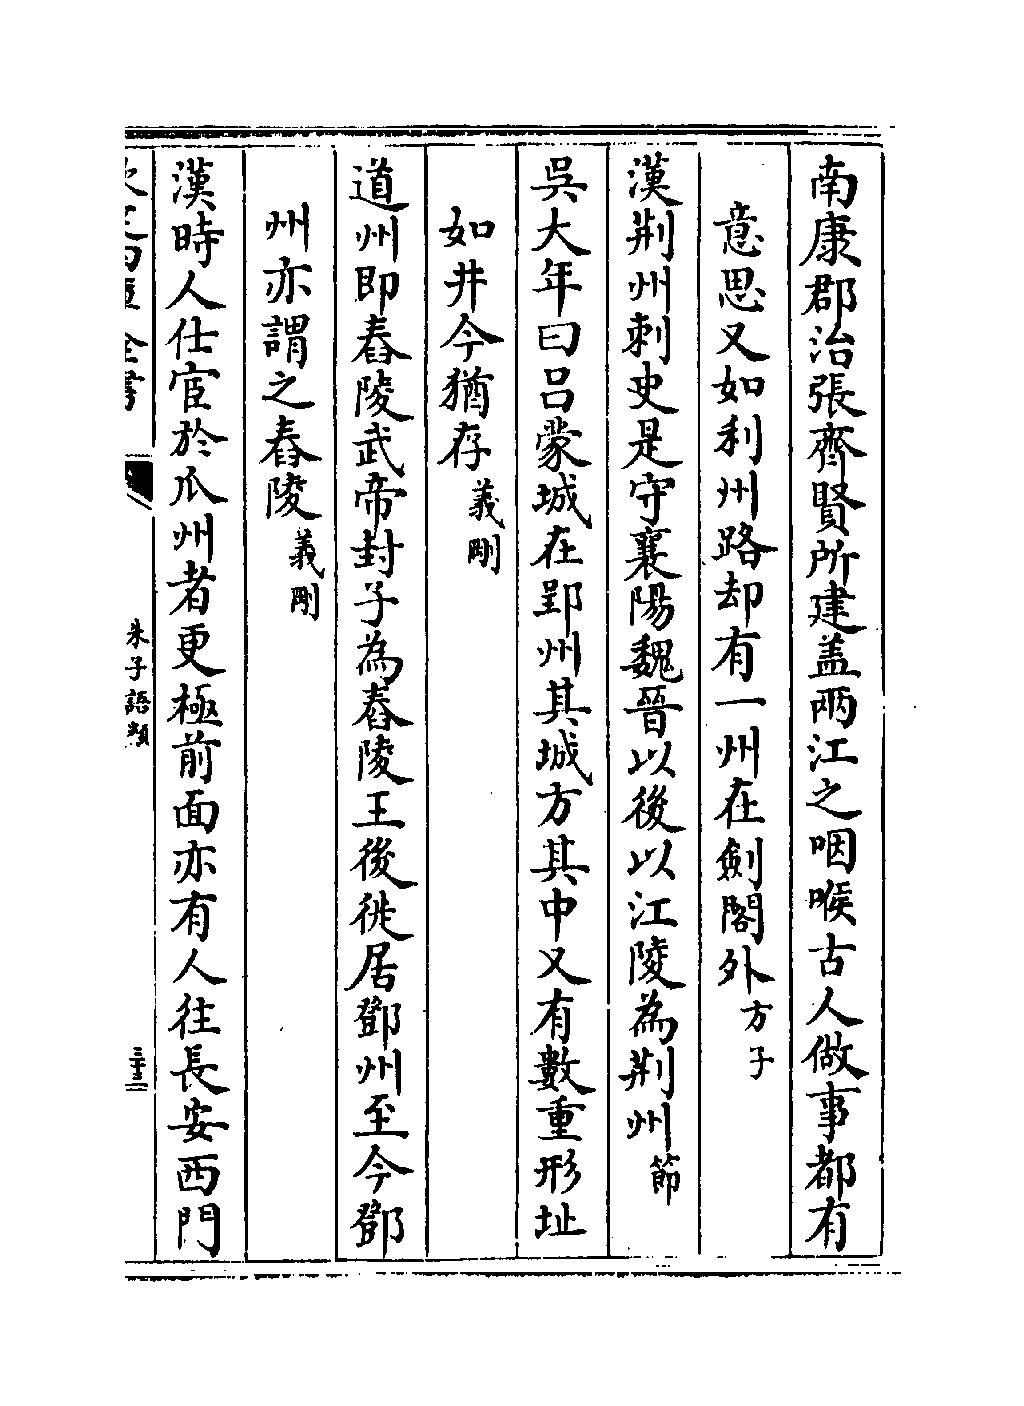 南康郡治張齊賢所建盖兩江之咽喉古人做事都有
意思又如利州路却有一州在劍閣外方子
漢荆州刺史是守襄陽魏晉以後以江陵為荆州節
吳大年曰吕蒙城在郢州其城方其中又有數重形址
如井今猶存義剛
道州即舂陵武帝封子為舂陵王後徙居鄧州至今鄧
州亦謂之舂陵義剛
漢時人仕宦於瓜州者更極前面亦有人往長安西門
欽定四庫全書
朱子語類
三十三